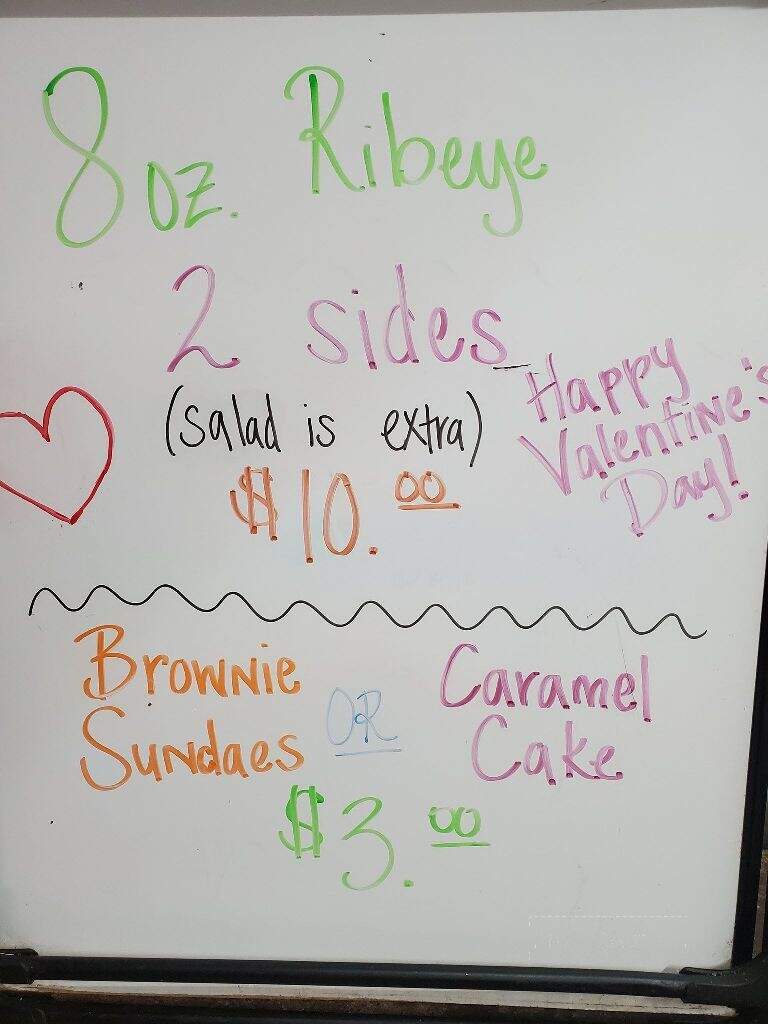 8 oz. Ribeye
2 sides
(salad is extra)
$10.00
Happy
Valentine's
Day!
Brownie
Sundaes
OR
Caramel
Cake
$3.00